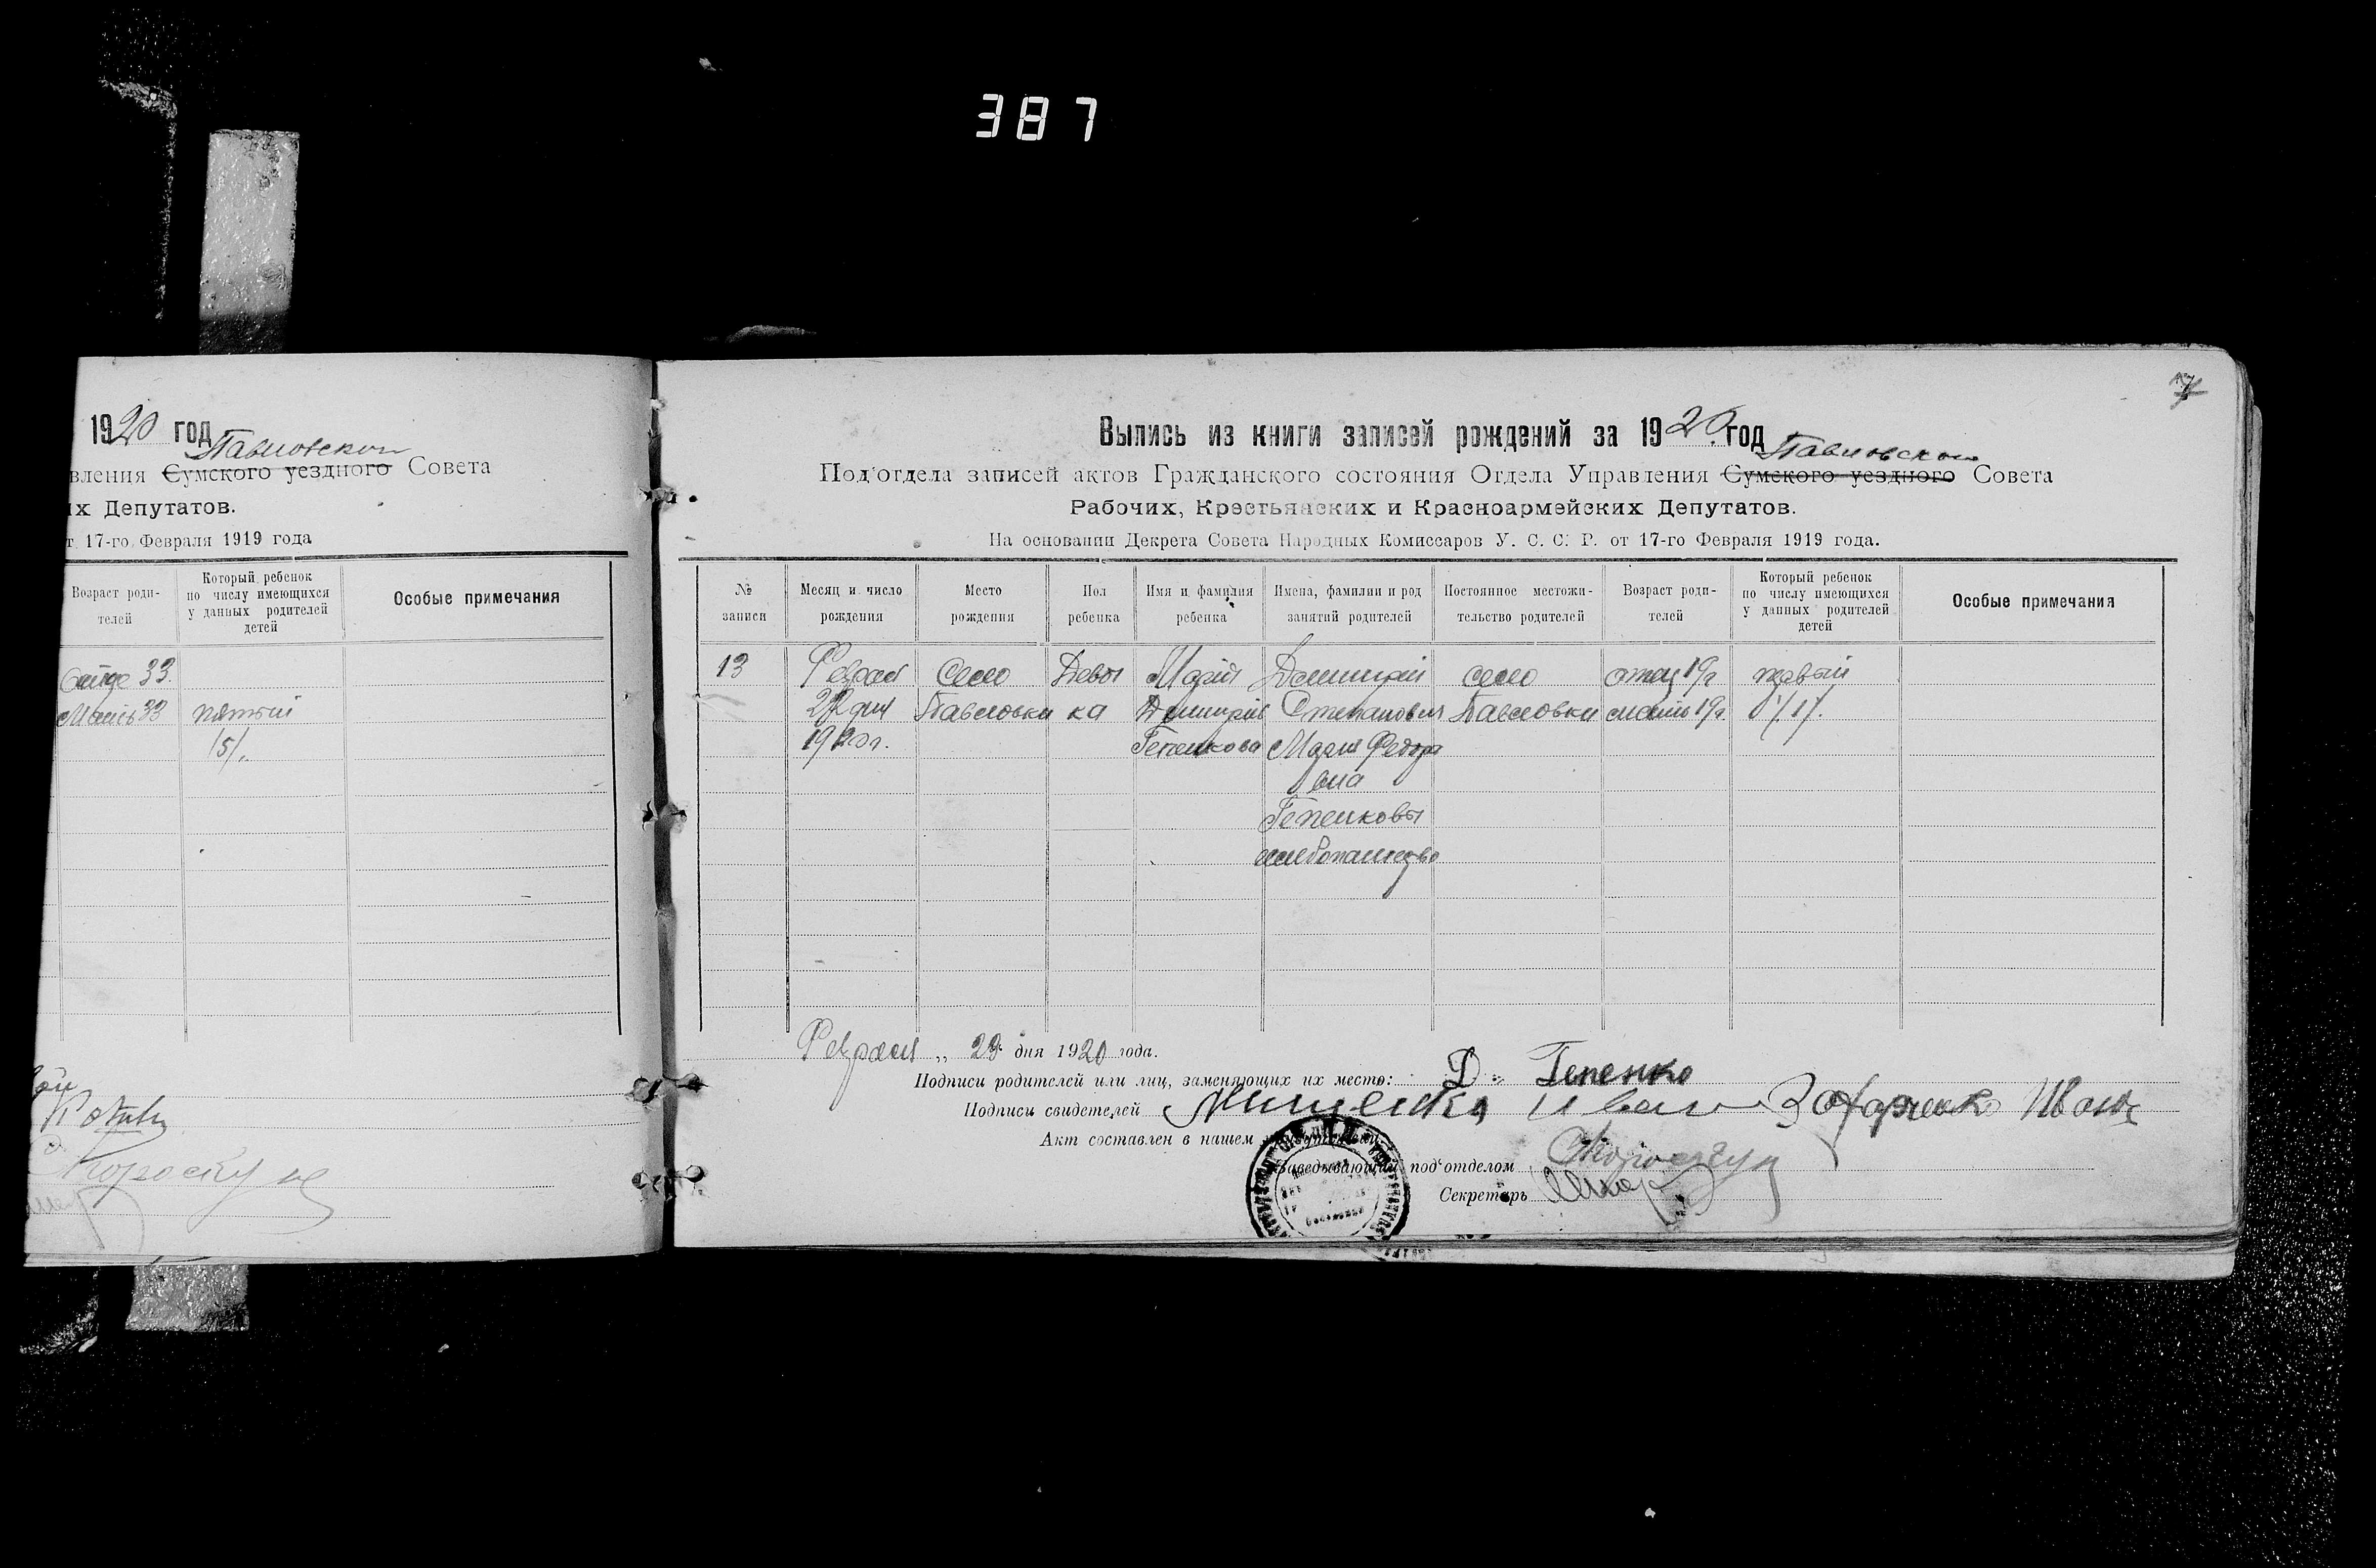 387
1920 год
Павловской
вления Сумского уездного Совета
их Депутатов.
т 17-го Февраля 1919 года
Возраст роди-
телей
Который ребенок
по числу имеющихся
у данных родителей
детей
Особые примечания
33.
33 пятый
/5/.
Выпись из книги записей рождений за 1920 год
Павловской
Под'отдела записей актов Гражданского состояния Отдела Управления Сумского уездного Совета
Рабочих, Крестьянских и Красноармейских Депутатов.
На основании Декрета Совета Народных Комиссаров У. С. С. Р. от 17-го Февраля 1919 года.
№
записи
Месяц и число
рождения
Место
рождения
Пол
ребенка
Имя и фамилия
ребенка
Имена, фамилии и род
занятий родителей
Постоянное местожи-
тельство родителей
Возраст роди-
телей
Который ребенок
по числу имеющихся
у данных родителей
детей
Особые примечания
13
Феврал
22 дня
1920 г.
Село
Павловки
Девоч
ка
Мария
Гепенкова
Димитрий
Степанович
Мария Федоро
вна
Гепенковы
хлебопашество
село
Павловки
отец 19 г
мать 19 г.
первый
/1/.
Февраля „ 29 дня 1920 года.
Подписи родителей или лиц, заменяющих их место: Д. Гепенко
Подписи свидетелей Иван Захарченко Иван
Акт составлен в нашем
Заведывающий под'отделом
Секретарь